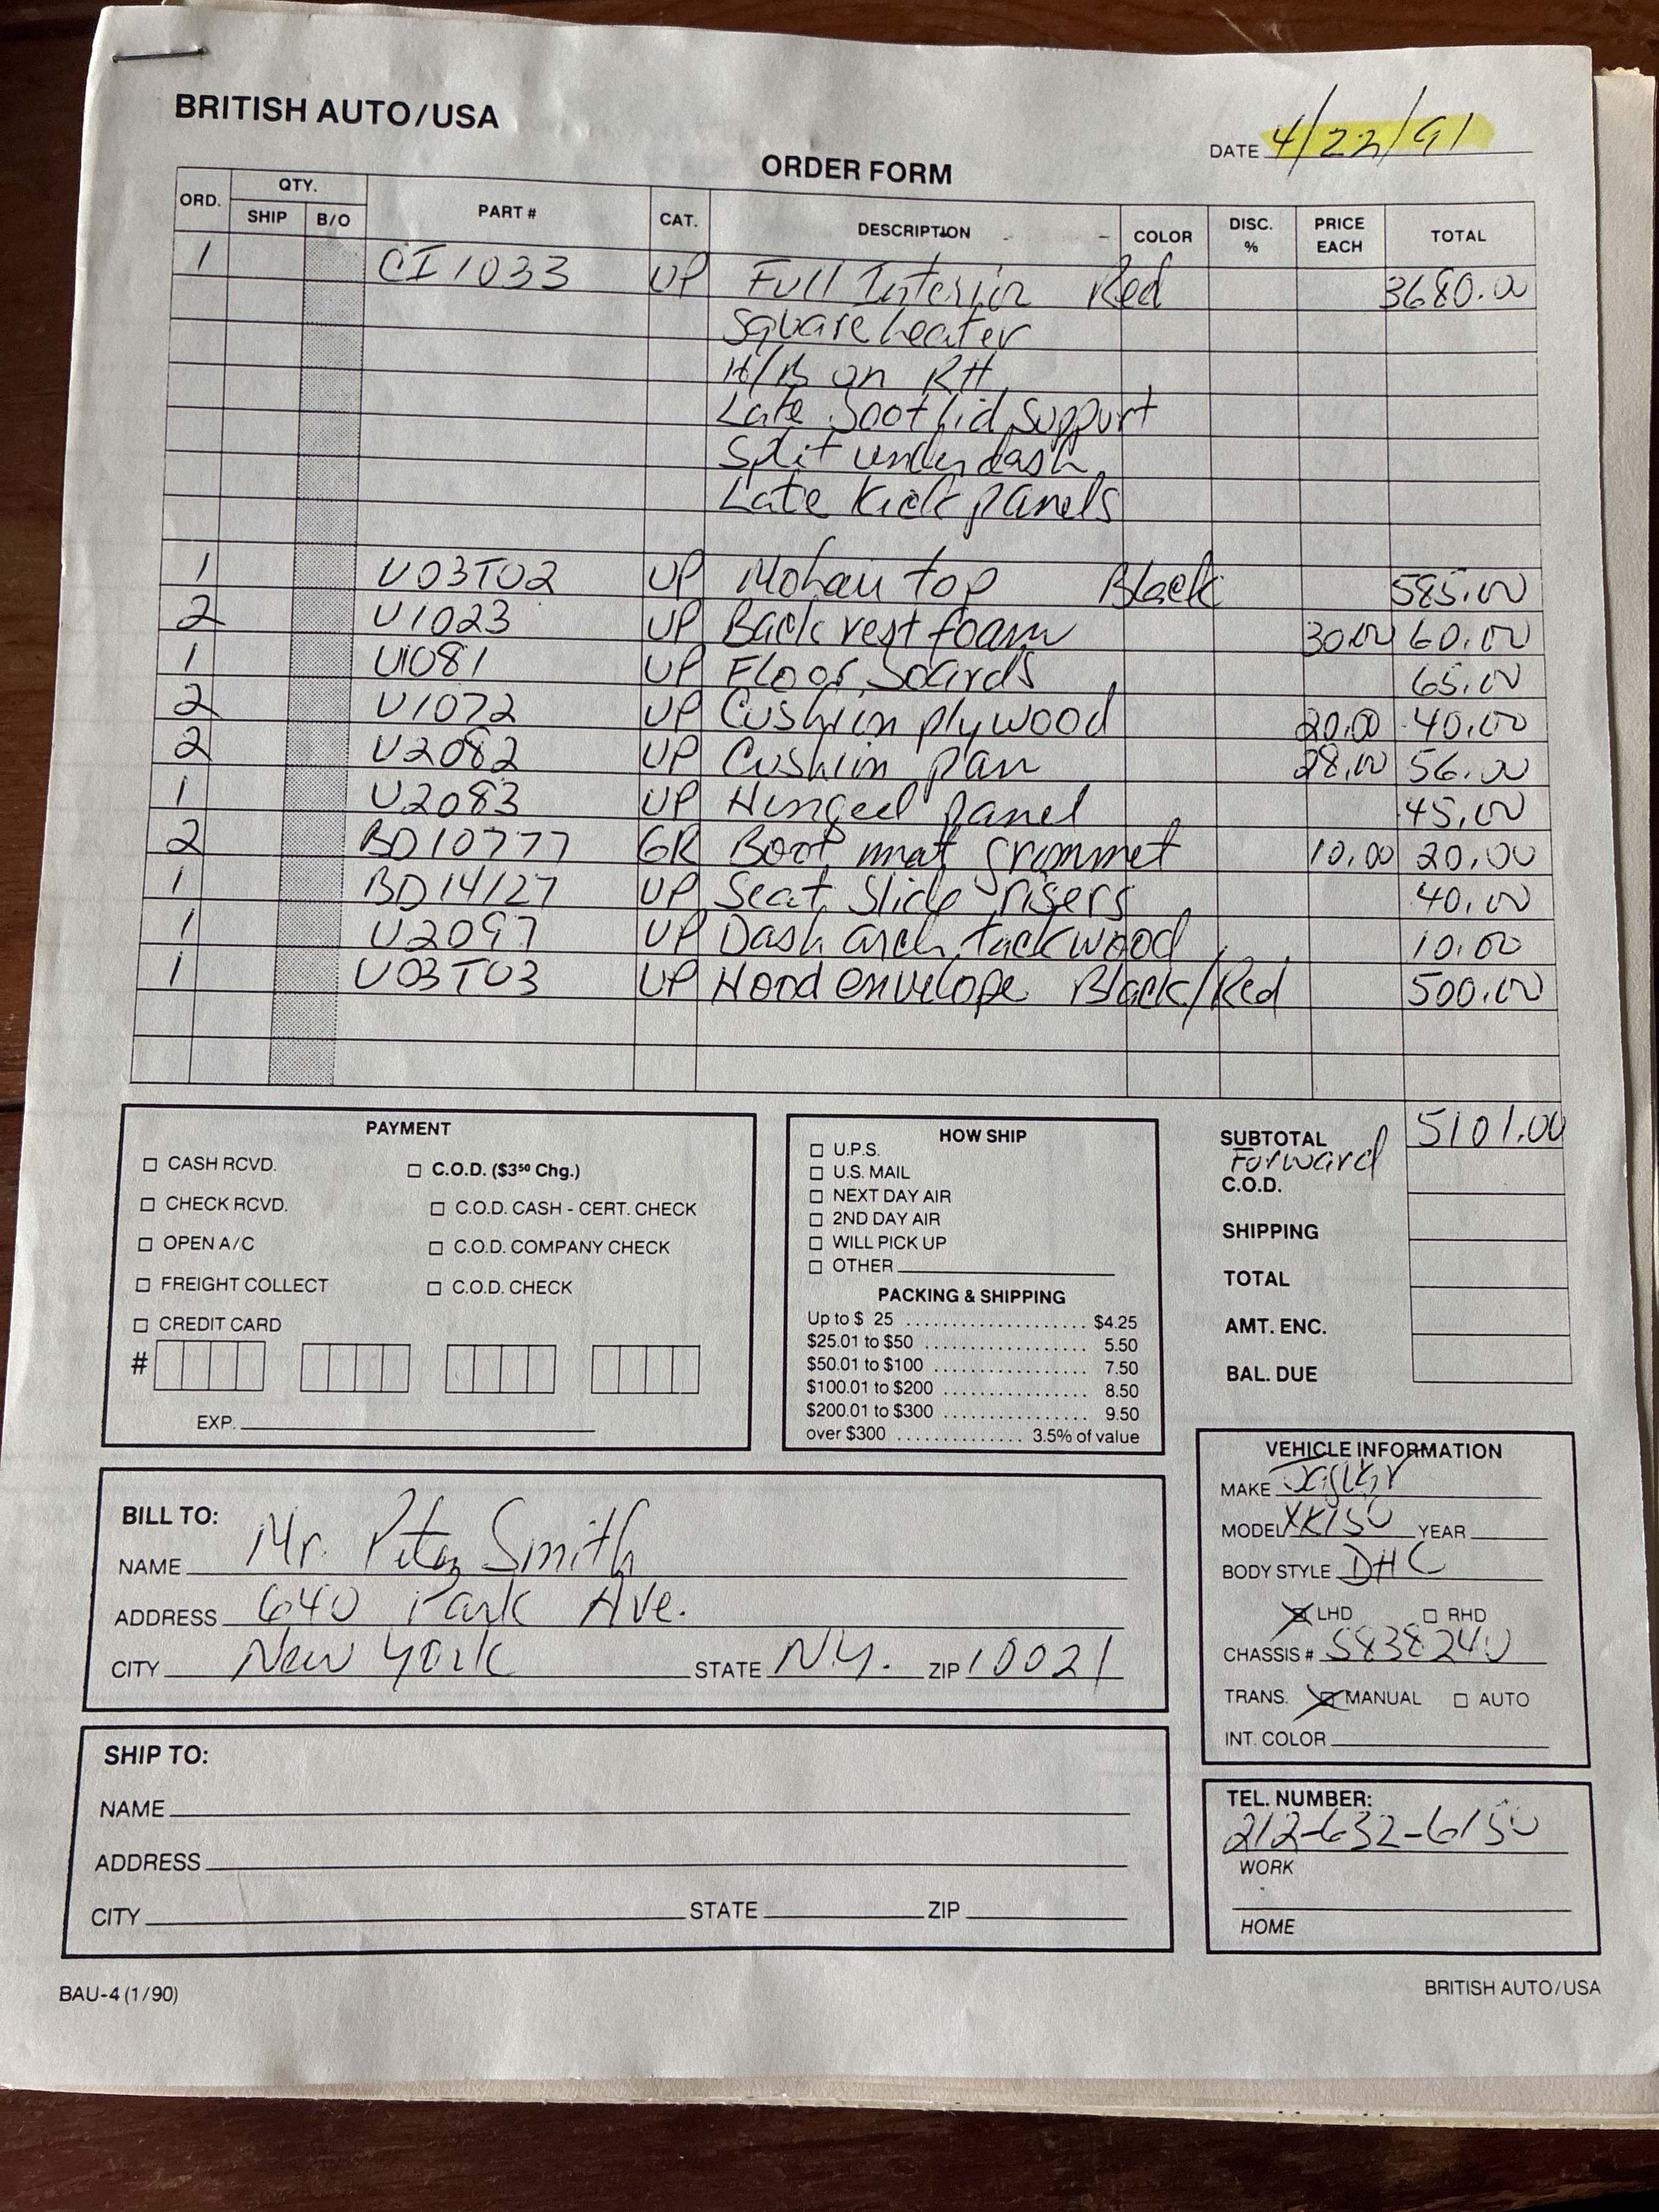 BRITISH AUTO/USA
DATE 4/22/91
ORDER FORM
ORD. QTY. SHIP B/O PART # CAT. DESCRIPTION COLOR DISC. % PRICE EACH TOTAL
1 CI1033 UP Full Interior Red 3680.00
Square heater
H/B on RH
Late boot lid support
Split under dash
Late kick panels
1 U03T02 UP Mohair top Black 585.00
2 U1023 UP Back rest foam 30.00 60.00
1 U1081 UP Floor boards 65.00
2 U1072 UP Cushion plywood 20.00 40.00
2 U2082 UP Cushion pan 28.00 56.00
1 U2083 UP Hinged panel 45.00
2 BD10777 GR Boot mat grommet 10.00 20.00
1 BD14127 UP Seat Slide risers 40.00
1 U2097 UP Dash arch tackwood 10.00
1 U03T03 UP Hood envelope Black/Red 500.00
SUBTOTAL 5101.00
Forward
C.O.D.
SHIPPING
TOTAL
AMT. ENC.
BAL. DUE
PAYMENT
CASH RCVD. C.O.D. ($3⁵⁰ Chg.)
CHECK RCVD. C.O.D. CASH - CERT. CHECK
OPEN A/C C.O.D. COMPANY CHECK
FREIGHT COLLECT C.O.D. CHECK
CREDIT CARD
#
EXP.
HOW SHIP
U.P.S.
U.S. MAIL
NEXT DAY AIR
2ND DAY AIR
WILL PICK UP
OTHER
PACKING & SHIPPING
Up to $ 25 .................... $4.25
$25.01 to $50 .................. 5.50
$50.01 to $100 ................. 7.50
$100.01 to $200 ................ 8.50
$200.01 to $300 ................ 9.50
over $300 ............. 3.5% of value
BILL TO:
NAME Mr. Peter Smith
ADDRESS 640 Park Ave.
CITY New York STATE N.Y. ZIP 10021
SHIP TO:
NAME
ADDRESS
CITY STATE ZIP
VEHICLE INFORMATION
MAKE Jaguar
MODEL XK150 YEAR
BODY STYLE DHC
LHD RHD
CHASSIS # S838240
TRANS. MANUAL AUTO
INT. COLOR
TEL. NUMBER:
212-632-6150
WORK
HOME
BAU-4 (1/90)
BRITISH AUTO/USA